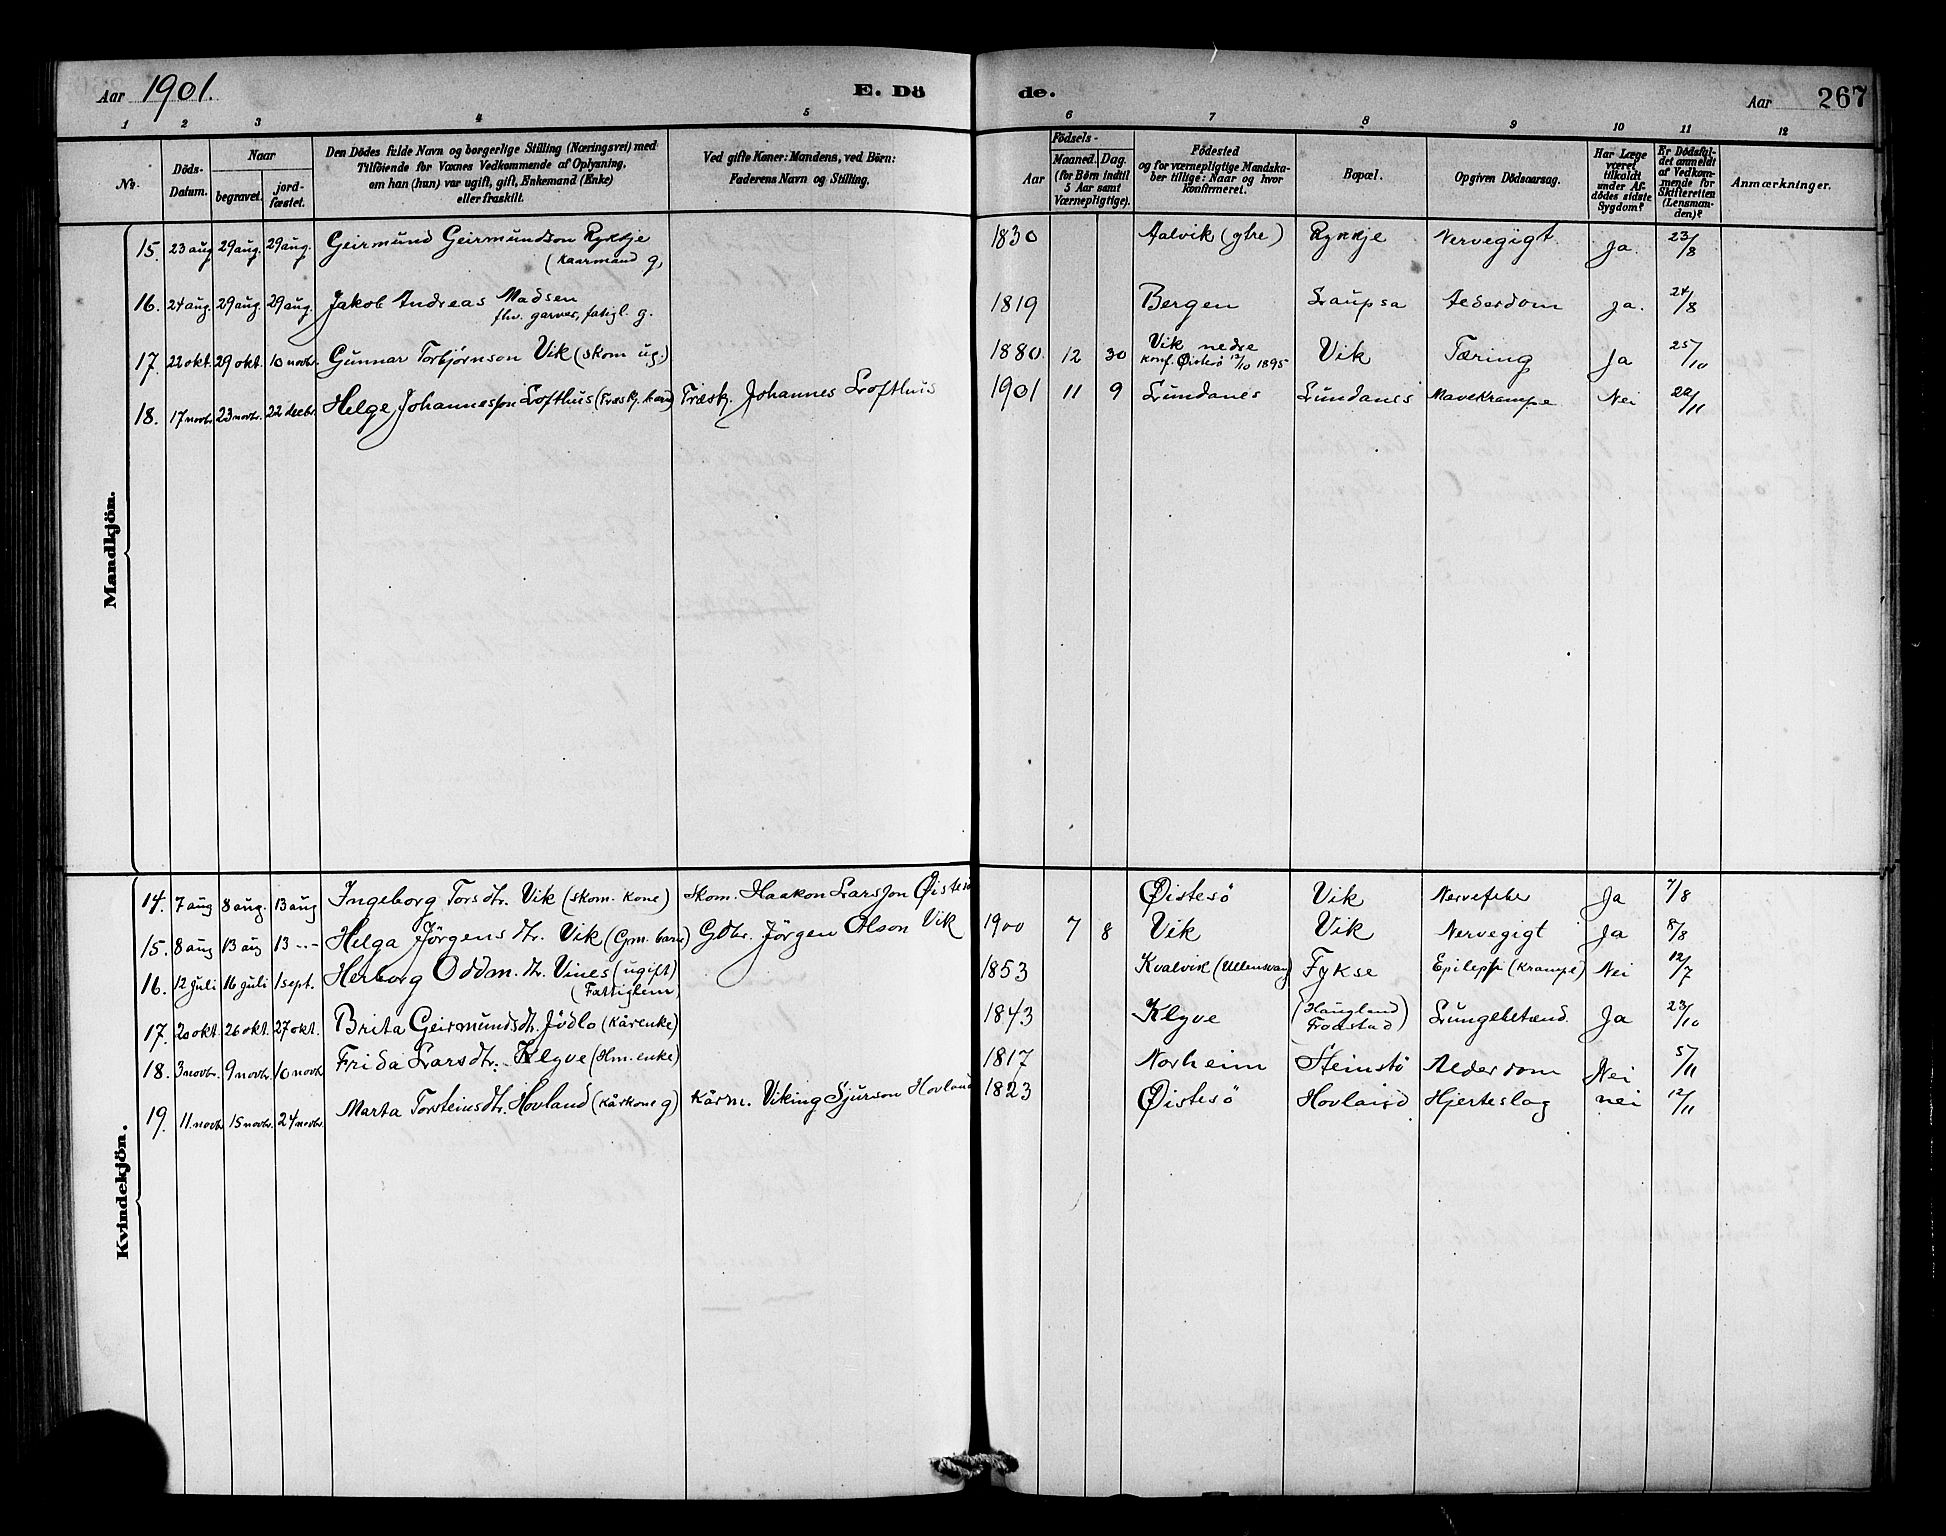 Aar 1901. E. Dö de. Aar 267
1 2 3 4 5 6 7 8 9 10 11 12
Nr. Döds-Datum. Naar begravet. jordfæstet. Den Dödes fulde Navn og borgerlige Stilling (Næringsvei) med Tilföiende for Voxnes Vedkommende af Oplysning, om han (hun) var ugift, gift, Enkemand (Enke) eller fraskilt. Ved gifte Koner: Mandens, ved Börn: Faderens Navn og Stilling. Aar Födsels- Maaned. Dag. (for Börn indtil 5 Aar samt Værnepligtige). Födested og for værnepligtige Mandskaber tillige: Naar og hvor Konfirmeret. Bopæl. Opgiven Dödsaarsag. Har Læge været tilkaldt under Afdödes sidste Sygdom? Er Dödsfaldet anmeldt af Vedkommende for Skifteretten (Lensmanden)? Anmærkninger.
Mandkjön.
15. 23 aug 29 aug. 29 aug. Geirmund Geirmundson Rykkje (kaarmand g) 1830 Aalvik (ytre) Rykkje Nervegigt Ja. 23/8
16. 24 aug. 29 aug. 29 aug. Jakob Andreas Madsen fhv. garver, fatigl. g. 1819 Bergen Laupsa Alderdom ja. 24/8
17. 22 okt. 29 okt. 10 novbr. Gunnar Torbjørnson Vik (skom ug.) 1880 12 30 Vik nedre konf. Øistesø 13/10 1895 Vik Tæring Ja 25/10
18. 17 novbr 23 novbr. 22 decbr. Helge Johannesson Lofthus (Træskj. barn) Træskj. Johannes Lofthus 1901 11 9 Lundanes Lundanes Mavekrampe Nei 22/11
Kvindekjön.
14. 7 aug 8 aug. 13 aug Ingeborg Torsdtr. Vik (skom. kone) Skom. Haakon Larsson Øistesö Øistesö Vik Nervefeber Ja 7/8
15. 8 aug 13 aug 13 -"- Helga Jörgensdtr. Vik (Gm. barn) Gdbr. Jörgen Olson Vik 1900 7 8 Vik Vik Nervegigt Ja 8/8
16. 12 juli 16 juli 1 sept. Herborg Oddm.dtr. Vines (ugift) (Fattiglem) 1853 Kvalvik (Ullensvang) Fykse Epilepsi (Krampe) Nei 12/7
17. 20 okt 26 okt. 27 okt. Brita Geirmundsdtr. Jödlo (kårenke) 1843 Klyve (Haugland) Trodstad Lungebetænd. Ja 23/10
18. 3 novbr. 9 novbr. 10 novbr Frida Larsdtr. Klyve (Hm. enke) 1817 Norheim Steinstö Alderdom Nei 5/11
19. 11 novbr 15 novbr. 24 novbr. Marta Torsteinsdtr. Hovland (kårkone g) Kårm. Viking Sjurson Hovland 1823 Øistesö Hovland Hjerteslag nei 12/11